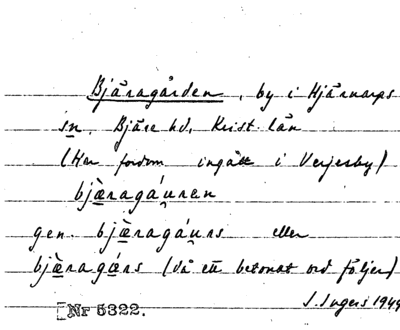 Bjäragården, by i Hjärnarps
sn. Bjäre hd, Krist. län
(Har fordom ingått i Verjesby)
bjæ̀ragáu̯ren
gen. bjæ̀ragáu̯rs eller
bjæ̀ragærs (då ett betonat ord följer)
I. Ingers 1944
Nr 5322.